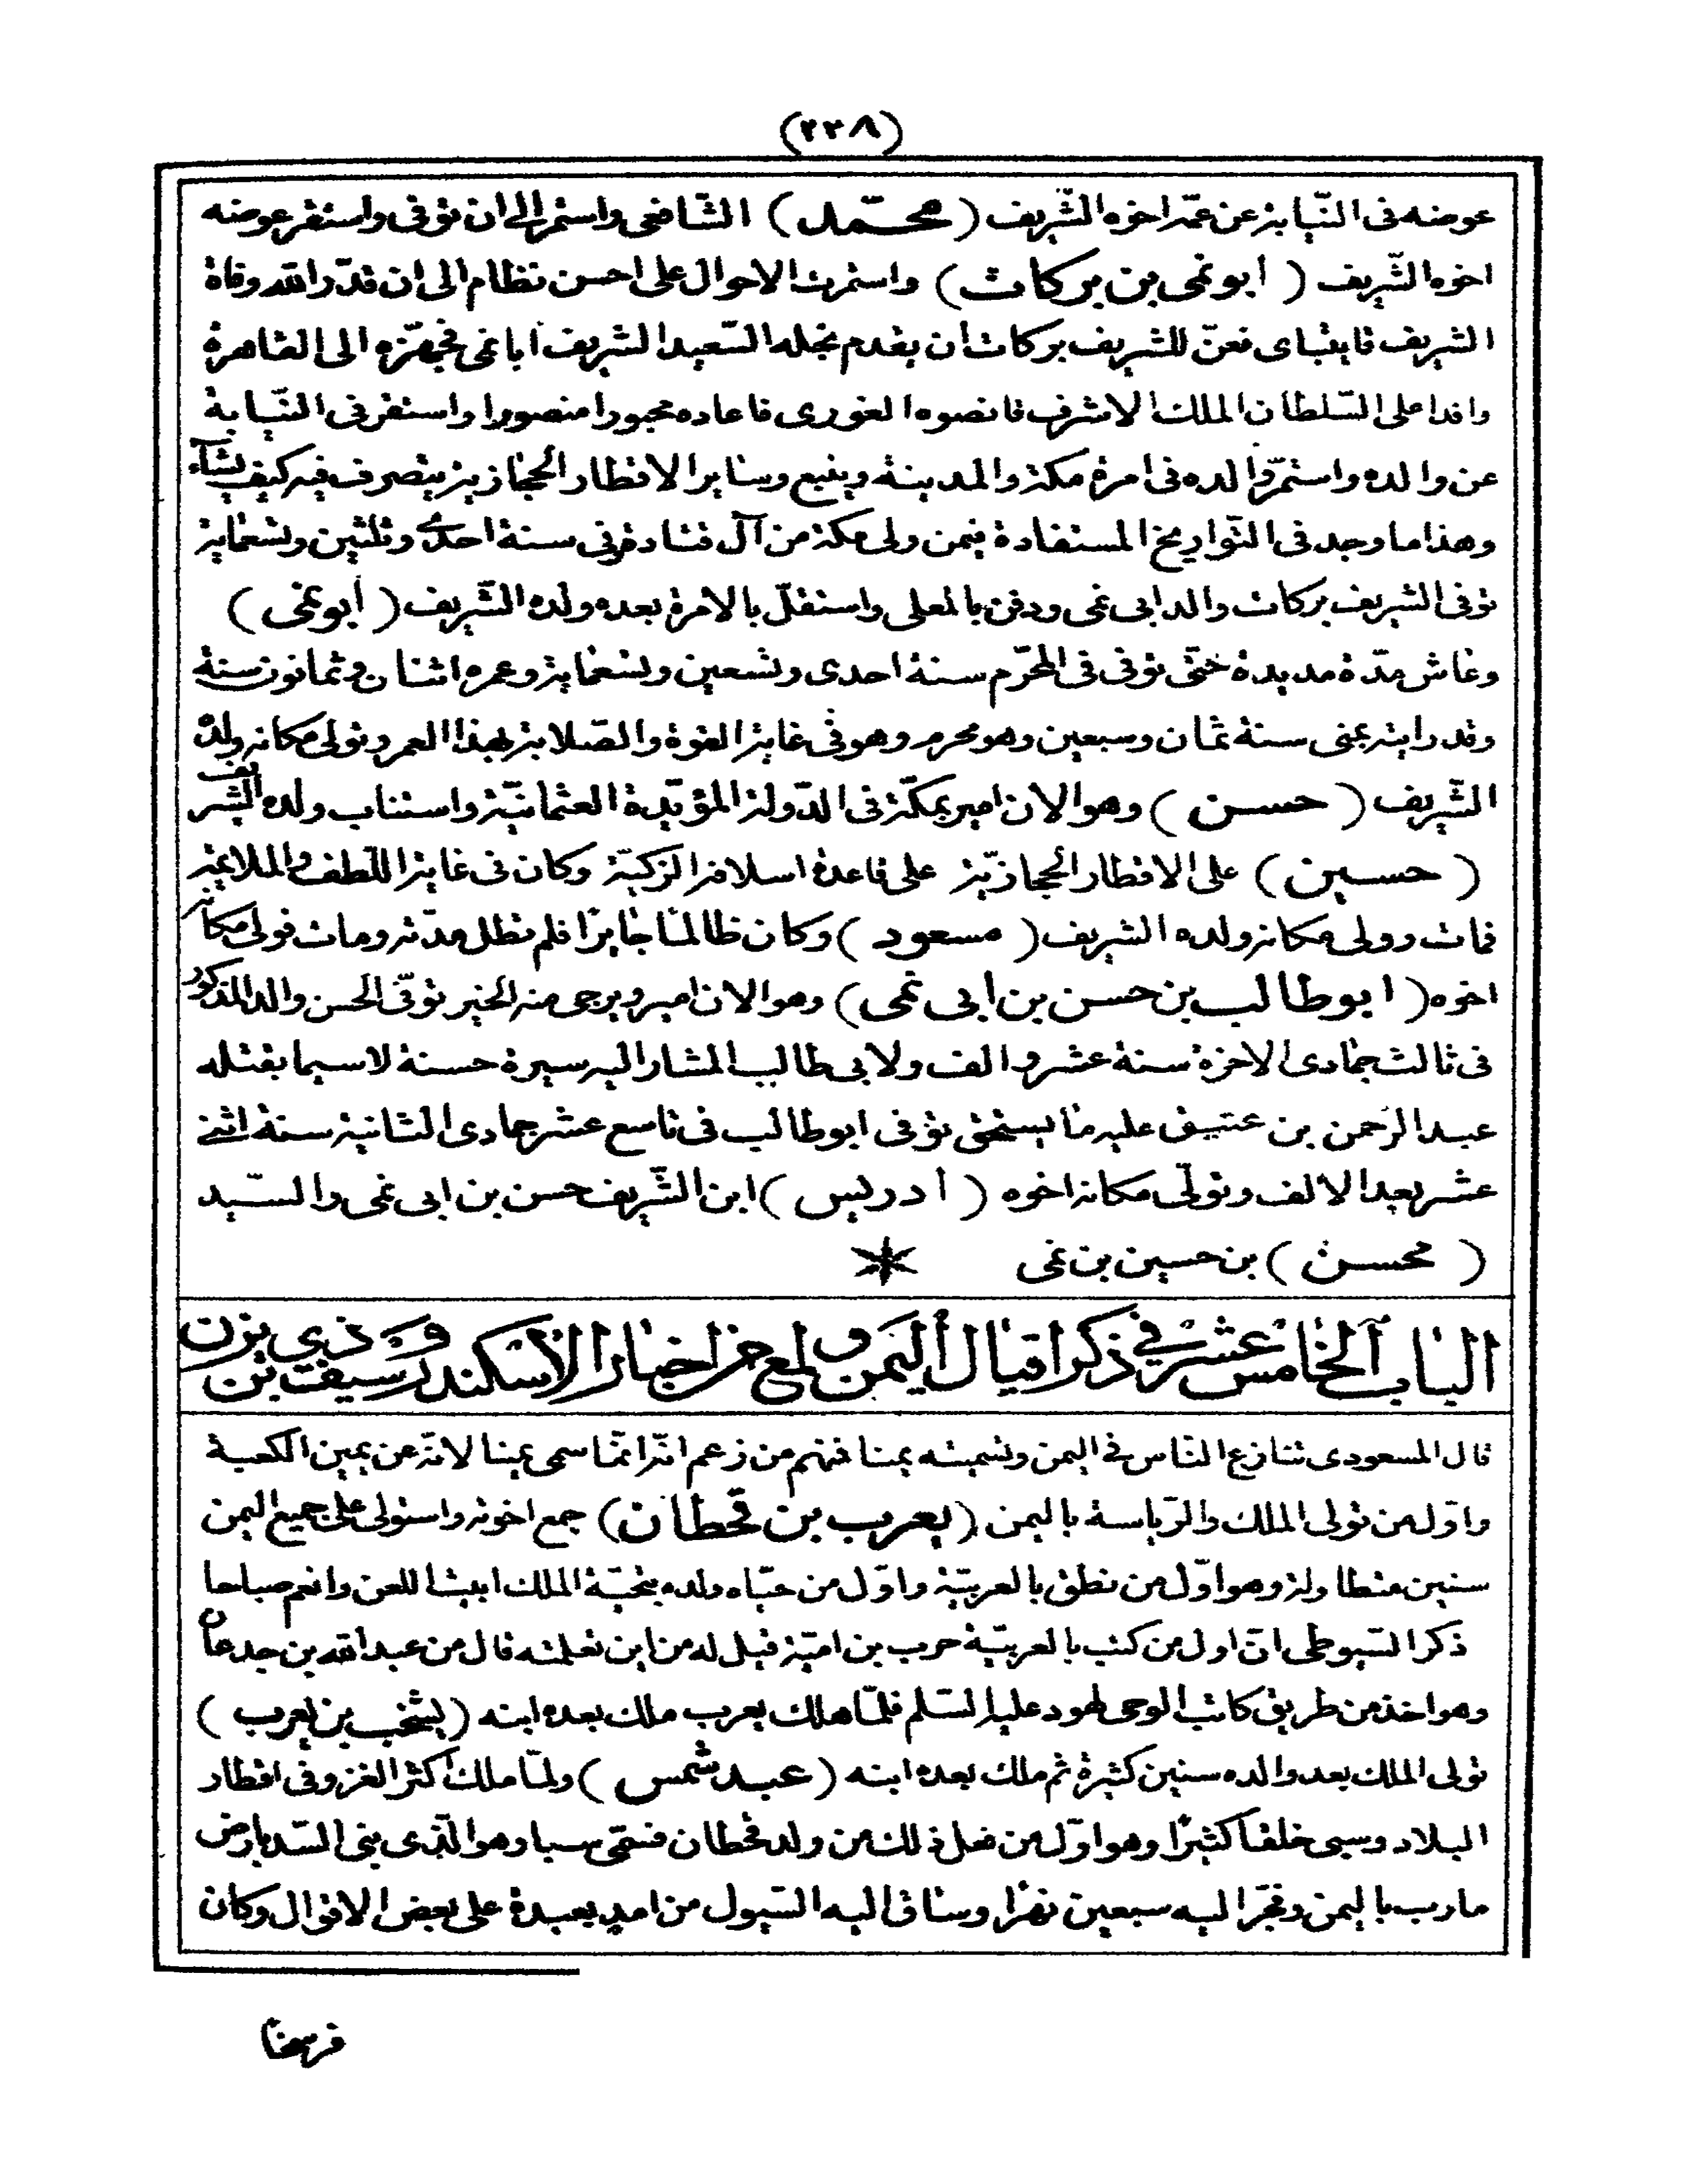 (٢٢٨)
عوضه فى النّيابة عن عمّه اخوه الشّريف (محمّد) الشّافعى واستمر الى ان توفى واستقر عوضه
اخوه الشّريف (أبو نمى بن بركات) واستمرت الاحوال على احسن نظام الى ان قدّر الله وفاة
الشريف قايتباى فعنّ للشريف بركات أن يقدم نجله السّعيد الشريف أبا نمى فجهّزه الى القاهرة
وافدا على السّلطان الملك الاشرف قانصوه الغورى فاعاده مجبورا منصورا واستقر فى النّيابة
عن والده واستمرّ والده فى امرة مكة والمدينة وينبع وسائر الاقطار الحجازية يتصرف فيه كيف يشآء
وهذا ما وجد فى التّواريخ المستفادة فيمن ولى مكة من آل قتادة وفى سنة احدى وثلثين وتسعماية
توفى الشريف بركات والد ابى نمى ودفن بالمعلى واستقلّ بالامرة بعده ولده الشّريف (أبو نمى)
وعاش مدّة مديدة حتى توفى فى المحرّم سنة احدى وتسعين وتسعماية وعمره اثنان وثمانون سنة
وقد رايته بمنى سنة ثمان وسبعين وهو محرم وهو فى غاية القوة والصّلابة بهذا العمر وتولى مكانه ولده
الشّريف (حسن) وهو الان امير بمكّة فى الدّولة المؤيّدة العثمانيّة واستناب ولده الشّريف
(حسين) على الاقطار الحجازيّة على قاعدة اسلافه الزكيّة وكان فى غاية اللّطف والملايمة
فمات وولى مكانه ولده الشريف (مسعود) وكان ظالمًا جايرًا فلم تطل مدّته ومات فولى مكانه
اخوه (ابو طالب بن حسن بن ابى نمى) وهو الان امير ويرجى منه الخير توفّى الحسن والد المذكور
فى ثالث جمادى الاخرة سنة عشر و الف ولابى طالب المشار اليه سيرة حسنة لا سيما بقتله
عبد الرّحمن بن عتيق عليه ما يستحق توفى ابو طالب فى تاسع عشر جمادى الثانية سنة اثنے
عشر بعد الالف وتولّى مكانه اخوه (أدريس) ابن الشّريف حسن بن ابى نمى والسّيد
(محسن) بن حسين بن نمى
الباب الخامس عشر في ذكر اقيال أليمن و لمع من اخبار الاسكندر و سيف بن ذي يزن
قال المسعودى تنازع النّاس فى اليمن وتسميته يمنا فمنهم من زعم انّه انّما سمى يمينا لانّه عن يمين الكعبة
واوّل من تولى الملك والرّياسة باليمن (يعرب بن قحطان) جمع اخوته واستولى على جميع اليمن
سنين متطاولة وهو اوّل من نطق بالعربيّة واوّل من حيّاه ولده بتحيّة الملك ابيت اللعن وانعم صباحا
ذكر السّيوطى انّ اول من كتب بالعربيّة حرب بن اميّة فقيل له من اين تعلمته قال من عبد الله بن جدعان
وهو اخذ من طريق كاتب الوحى لهود عليه السّلم فلمّا هلك يعرب ملك بعده ابنه (يشجب بن يعرب)
تولى الملك بعد والده سنين كثيرة ثم ملك بعده ابنه (عبد شمس) ولمّا ملك أكثر الغزو فى اقطار
البلاد وسبى خلقا كثيرًا وهو اوّل من فعل ذلك من ولد قحطان فسمّى سبا وهو الّذى بنى السّد بارض
مارب باليمن وفجّر اليه سبعين نهرًا وساق اليه السّيول من امد بعيدة على بعض الاقوال وكان
فرسخًا